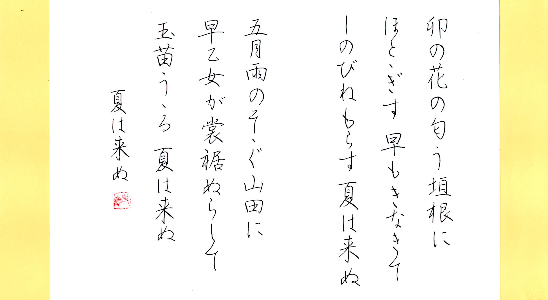 卯の花の匂う垣根に
ほとゝぎす 早もきなきて
しのびねもらす 夏は来ぬ
五月雨のそゝぐ山田に
早乙女が裳裾ぬらして
玉苗うゝる 夏は来ぬ
夏は来ぬ